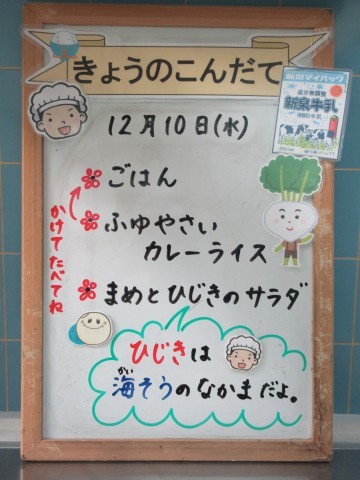 きょうのこんだて
成分無調整
新泉牛乳
12月10日(水)
ごはん
ふゆやさい
カレーライス
かけてたべてね
まめとひじきのサラダ
ひじきは
かい
海そうのなかまだよ。